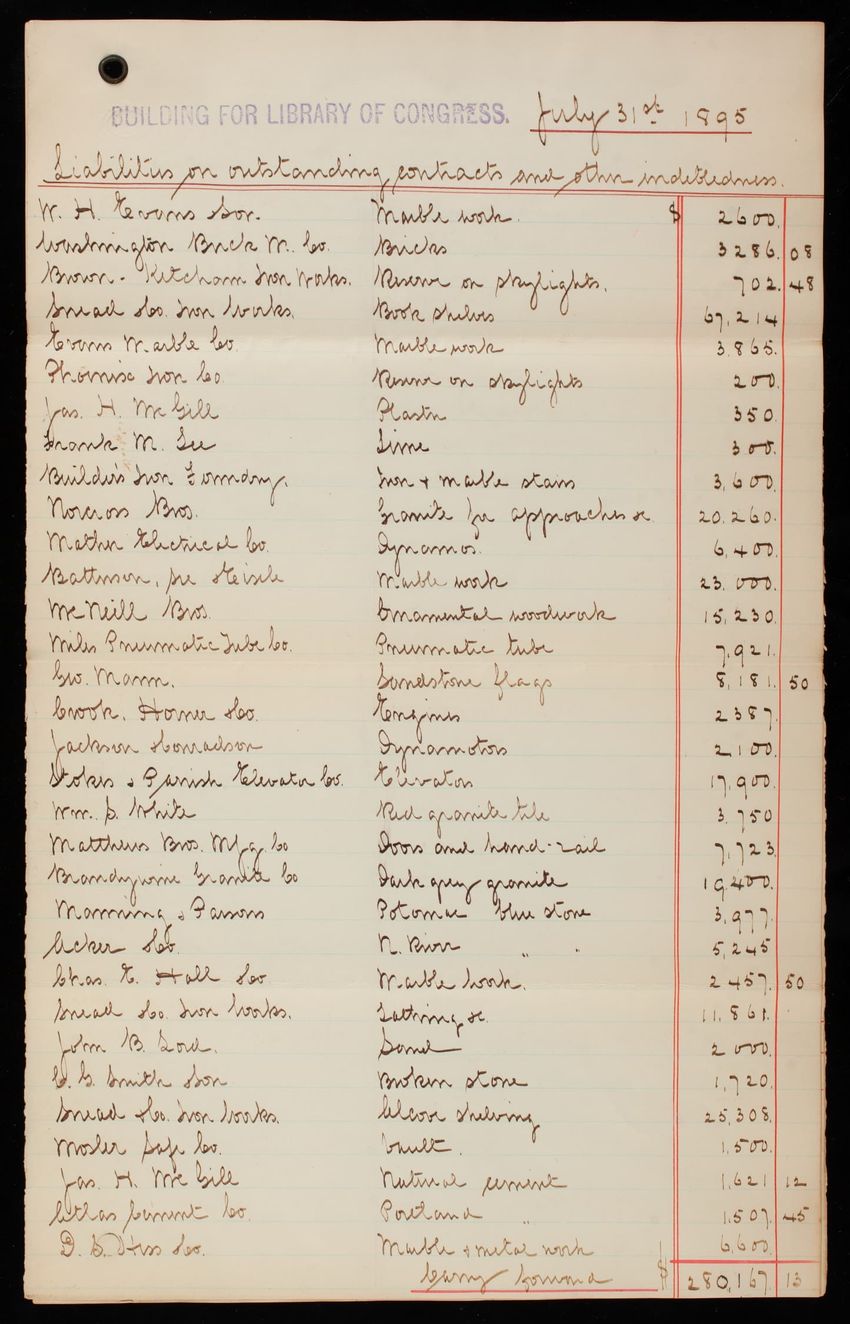 BUILDING FOR LIBRARY OF CONGRESS. July 31st 1895
Liabilities on outstanding contracts and other indebtedness.
W. H. Evans & Son. Marble work. $ 2600.
Washington Brick M. Co. Bricks 3286. 08
Brown-Ketcham Iron Works. Reserve on skylights. 702. 48
Snead & Co. Iron Works. Book shelves 67,214
Evans Marble Co. Marble work 3.865.
Phoenix Iron Co. Reserve on skylights 200.
Jas. H. McGill Plaster 350.
Frank M. Lee Lime 300.
Builder's Iron Foundry. Iron & marble stairs 3,600.
Norcross Bros. Granite for approaches &c. 20.260.
Mather Electrical Co. Dynamos. 6,400.
Batterson, See & Eisele Marble work 23.000.
McNeill Bros. Ornamental woodwork 15,230.
Miles Pneumatic Tube Co. Pneumatic tube 7,921.
Geo. Mann. Sandstone flags 8,181. 50
Crook, Horner & Co. Engines 2387.
Jackson & Conradson Dynamotors 2100.
Stokes & Parish Elevator Co. Elevators 17,900.
Wm. S. White Red granite tile 3.750
Matthews Bros. Mfg. Co Doors and hand-rail 7,723.
Brandywine Granite Co Dark grey granite 19400.
Manning & Parsons Potomac blue stone 3,977.
Acker & Co. N. River " " 5,245
Chas. E. Hall & Co Marble work. 2457. 50
Snead & Co. Iron Works. Lathing &c. 11.861.
John B. Lord. Sand 2000.
C. G. Smith & Son Broken stone 1,720.
Snead & Co. Iron Works. Alcove shelving 25,308.
Mosler Safe Co. Vault. 1.500.
Jas. H. McGill Natural cement 1.621 12
Atlas Cement Co. Portland " 1.507. 45
D. S. Hess & Co. Marble & metal work 6,600.
Carry forward $ 280,167. 13